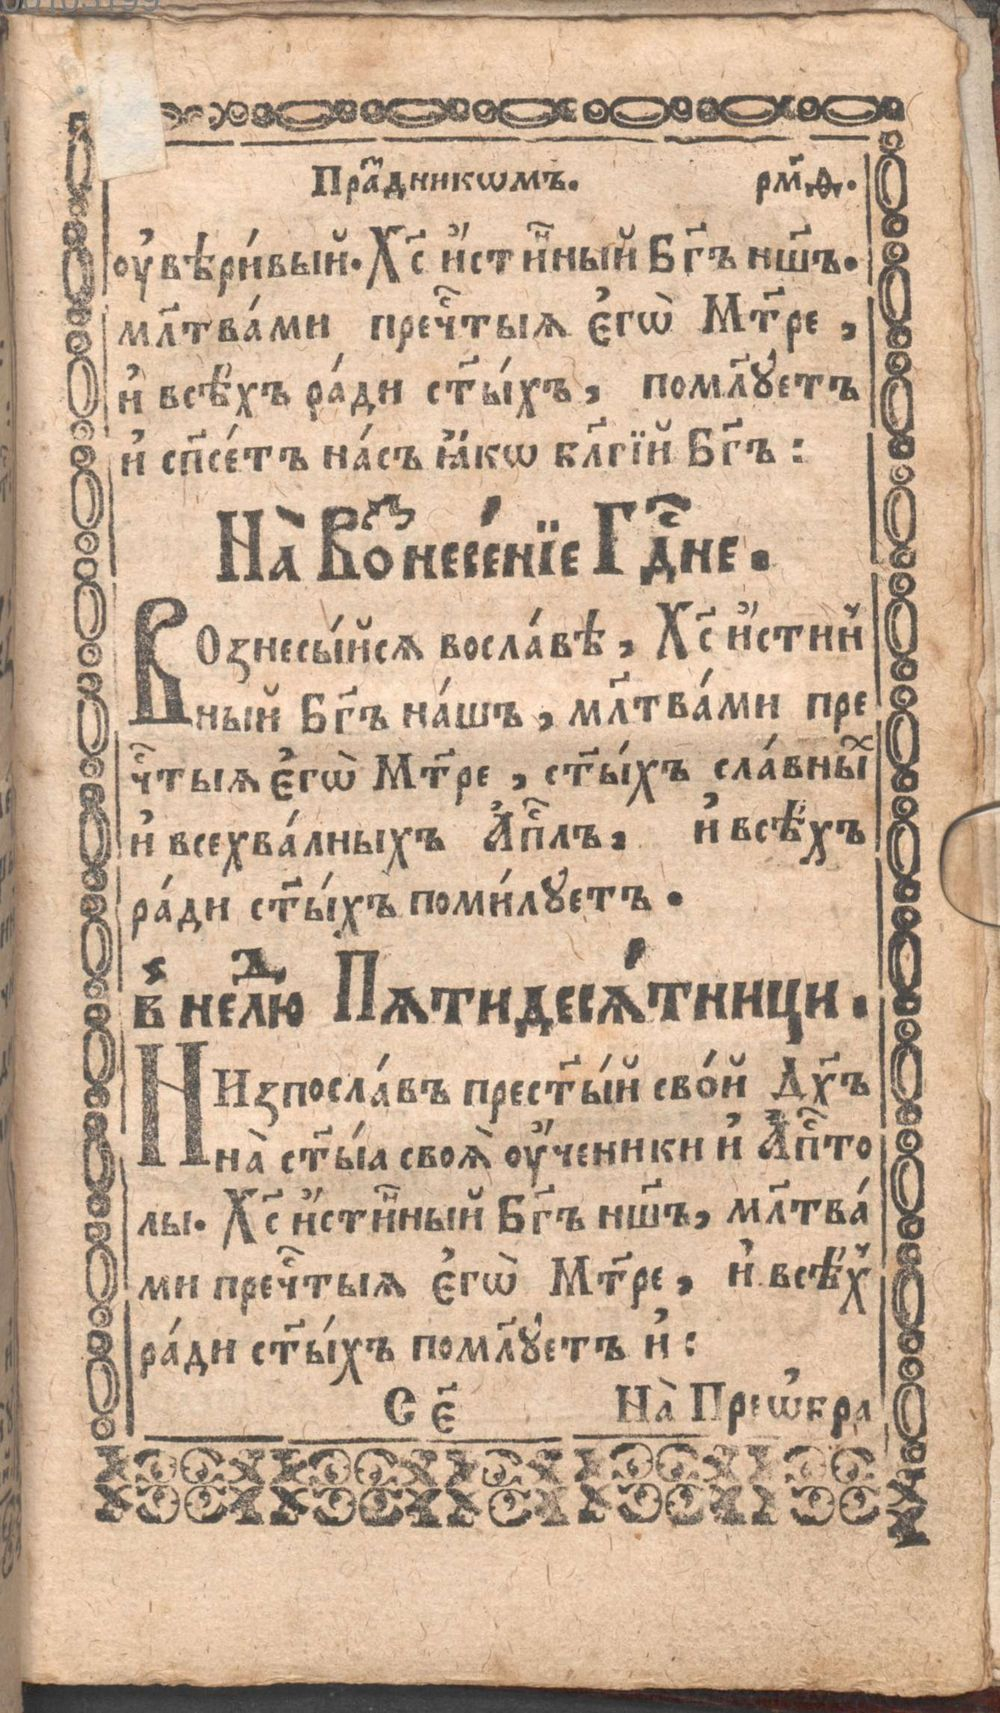 Пра́здникѡмъ. рм҃ѳ.
оу҆вѣри́вый. Хс҃ и҆́стинный Бг҃ъ нш҃ъ.
мл҃тва́ми преч҃тыѧ є҆гѡ̀ Мт҃ре ,
и҆ всѣ́хъ ра́ди ст҃ы́хъ , помл҃ꙋетъ
и҆ сп҃се́тъ на́съ ꙗ҆́кѡ бл҃гі́й Бг҃ъ :
На̀ Воз̾несе́нїе Гд҃не.
ВОзнесы́йсѧ во сла́вѣ , Хс҃ и҆́стин
ный Бг҃ъ на́шъ , мл҃тва́ми пре
ч҃тыѧ є҆гѡ̀ Мт҃ре , ст҃ы́хъ сла́вныⷯ
и҆ всехва́лныхъ А҆пⷭ҇лъ , и҆ всѣ́хъ
ра́ди ст҃ы́хъ поми́лꙋетъ .
в̾ неⷣлю Пѧтидесѧ́тници .
НИзпосла́въ прест҃ы́й сво́й Дх҃ъ
на̀ ст҃ы́а своѧ̀ оу҆ченики и҆ А҆пⷭ҇то
лы. Хс҃ и҆́стинный Бг҃ъ нш҃ъ , мл҃тва́
ми преч҃тыѧ є҆гѡ̀ Мт҃ре , и҆ всѣ́х̾
ра́ди ст҃ы́хъ помл҃ꙋ́етъ и҆ :
С є҃ На̀ Преѡ҆бра